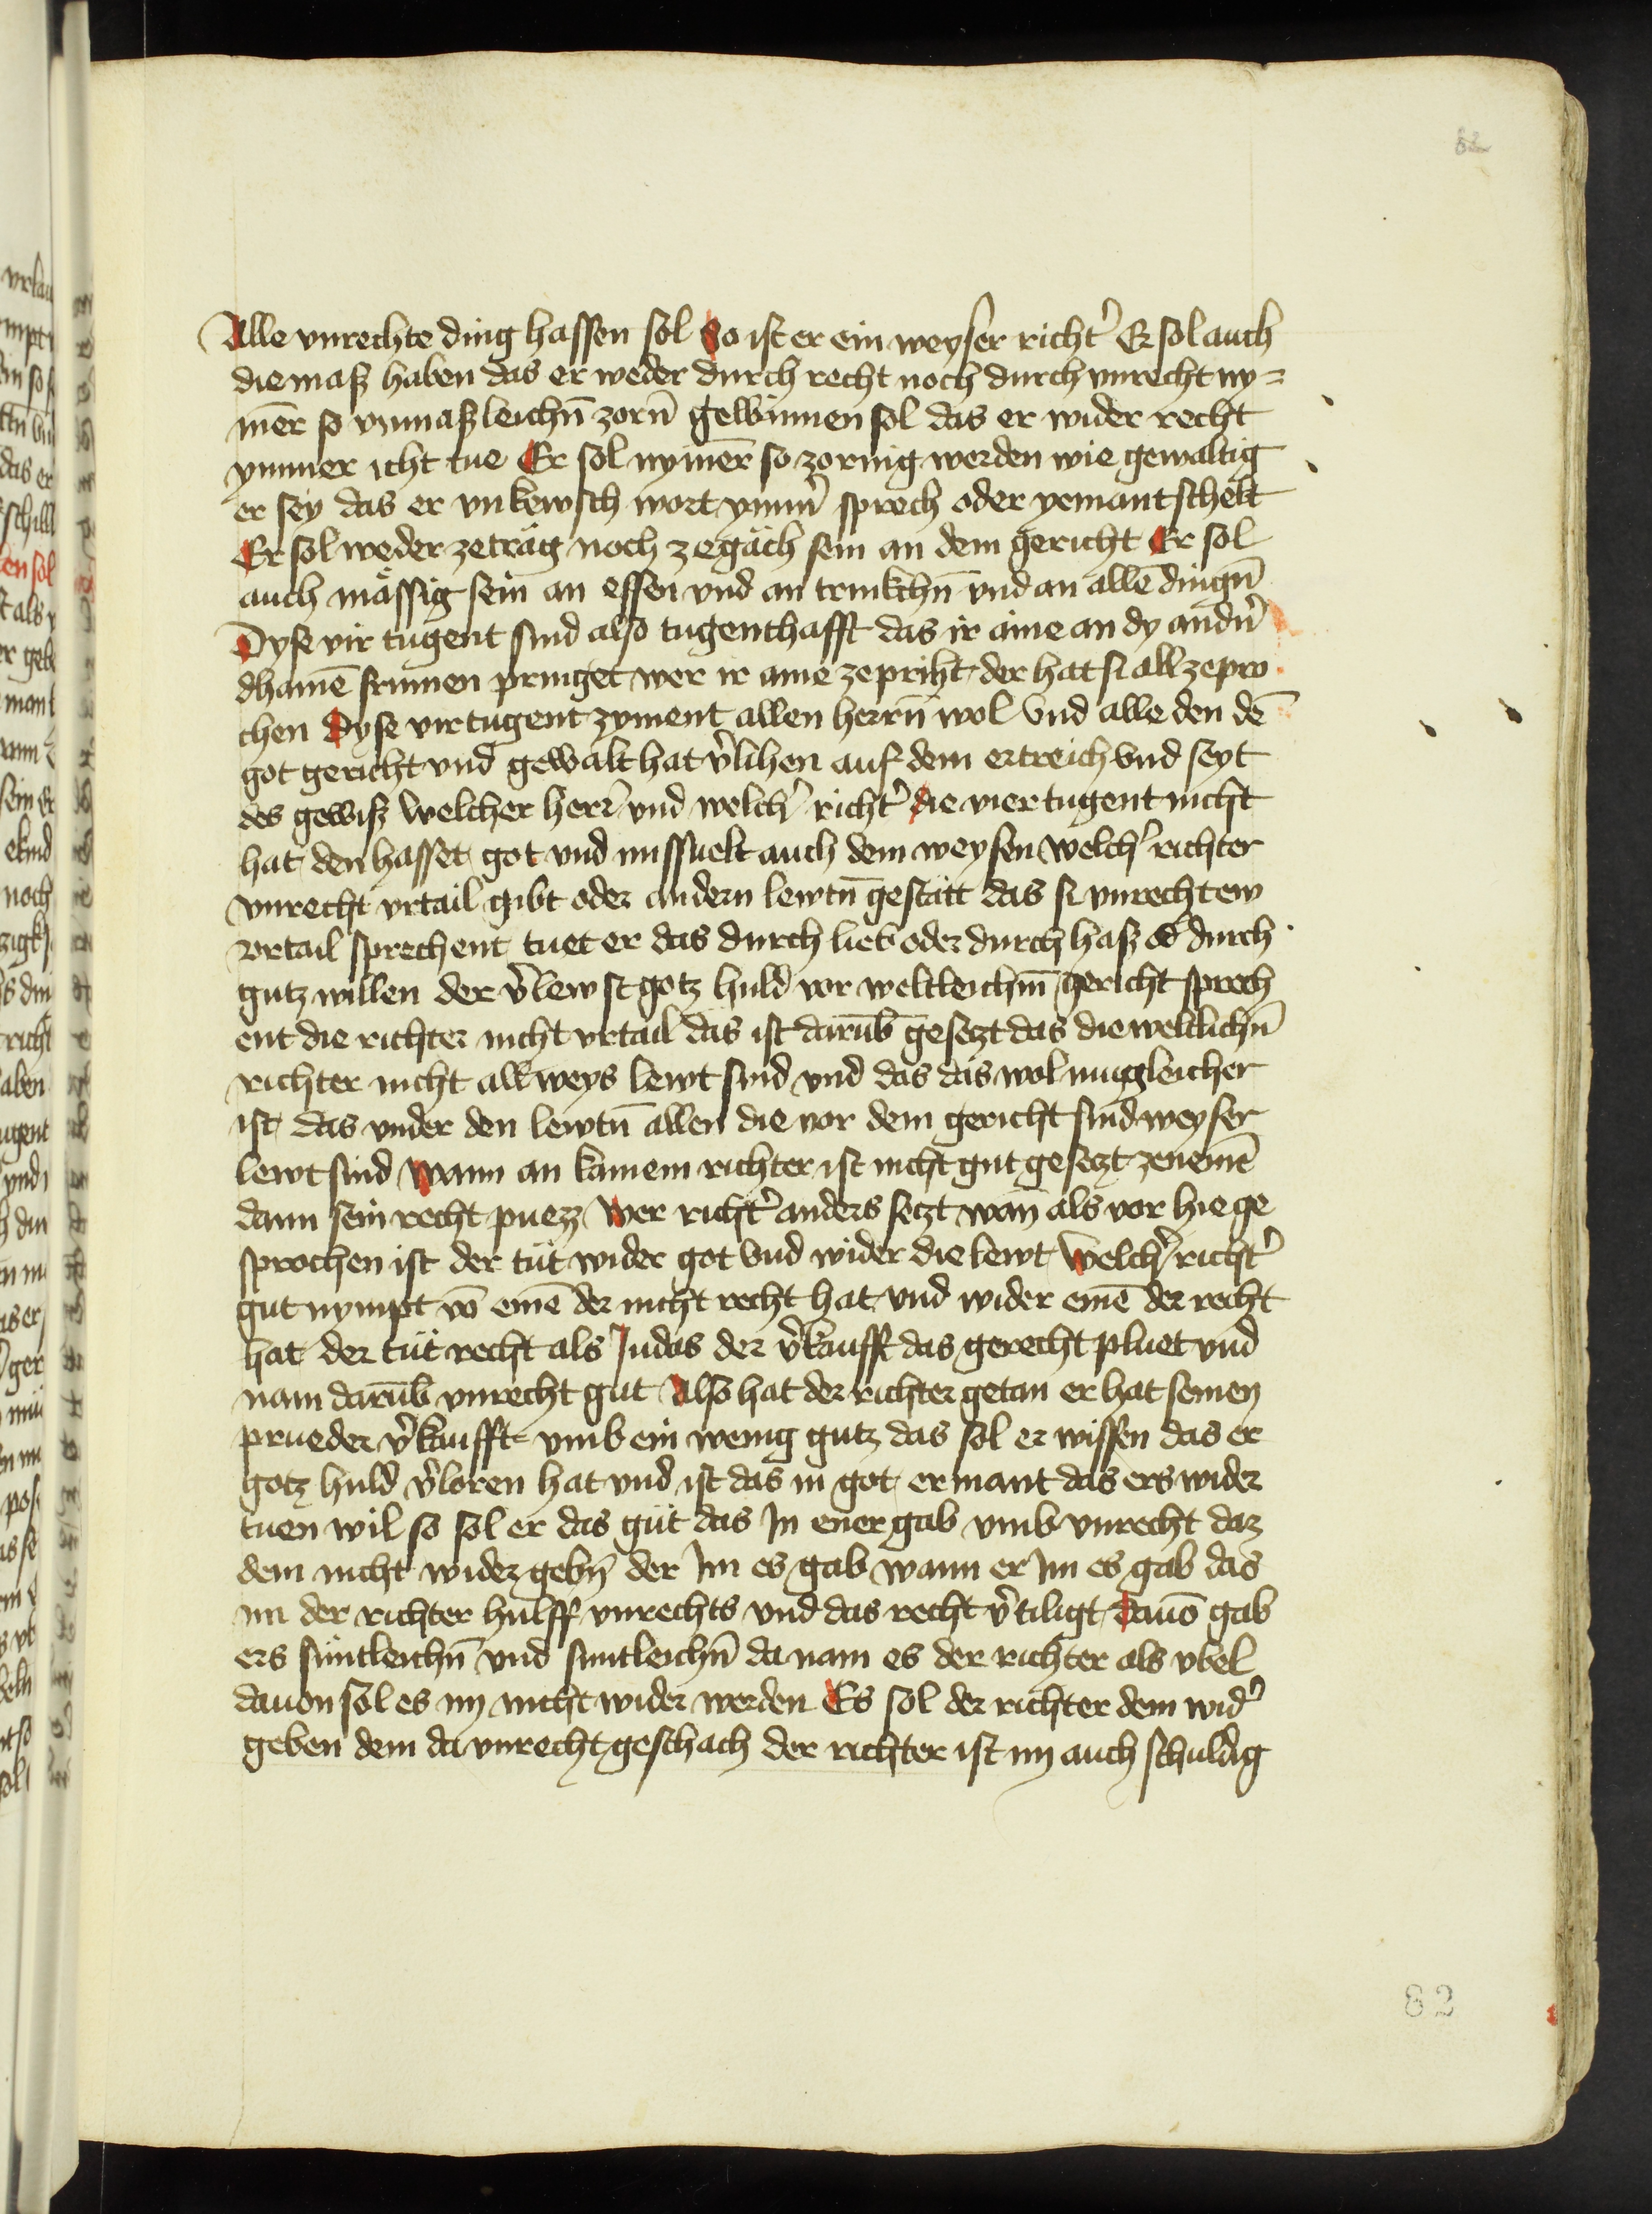 82
Alle vnrechte ding hassen sol So ist er ein weyser richt' Er sol auch
die maß haben das er weder durch recht noch durch vnrecht ny=
mer̄ so vnmaßleichn̄ zorn̄ gewinnen sol das er wider recht
ymmer icht tue Er sol nymer̄ so zornig werden wie gewaltig
er sey das er vnkewsch wort ymm' sprech oder yemant schelt
Er sol weder ze träg noch ze gäch sein an dem gericht Er sol
auch mässig sein an essen vnd an trinkchn̄ vnd an allē dingn̄
Dyse vir tugent sind also tugenthafft das ir aine an dy andn̄'
dhainē frumen pringet wer ir aine zepricht der hat si all zepro
chen Dyse vir tugent zyment allen herrn̄ wol Vnd alle den dē
got gericht vnd gewalt hat v'lihen auf dem ertreich Vnd seyt
des gewiß welcher herr' vnd welch' richt' die vier tugent nicht
hat den hasset got vnd missuelt auch dem weysen welch' richter
vnrecht vrtail gibt oder andern lewtn̄ gestätt das si vnrechtew
vrtail sprechent tuet er das durch lieb oder durch haß od' durch
gutz willen der v'lewst gotz huld vor weltleichm̄ gericht sprech
ent die richter nicht vrtail das ist darūb gesetzt das die weltlichn̄
richter nicht all weys lewt sind vnd das das wol mugleicher
ist das vnder den lewtn̄ allen die vor dem gericht sind weyser
lewt sind Wann an kainem richter ist nicht gut gesetzt ze nemē
dann sein recht puezz Wer richt' anders setzt wan als vor hie ge
sprochen ist der tüt wider got Vnd wider die lewt Welch' richt'
gut nympt vō einē der nicht recht hat vnd wider einē der recht
hat der tüt recht als Judas der v'kaufft das gerecht pluet vnd
nam darūb vnrecht gut Also hat der richter getan er hat seinen
prueder v'kaufft vmb ein wenig gutz das sol er wissen das er
gotz huld v'loren hat vnd ist das in got ermant das ers wider
tuen wil so sol er das güt das Jn ener gab vmb vnrecht daz
dem nicht wider gebn̄ der Jm es gab wann er Jm es gab das
im der richter hulff vnrechts vnd das recht v'tiligt Dauō gab
ers süntleichn̄ vnd suntleichn̄ da nam es der richter als vbel
dauon sol es im nicht wider werden Es sol der richter dem wid'
geben dem da vnrecht geschach der richter ist im auch schuldig
82